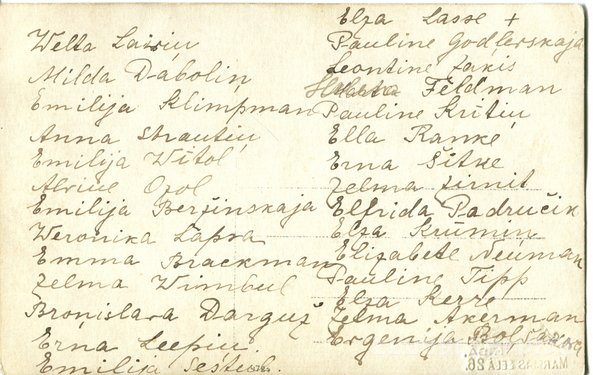 Welta Laiviņ
Milda Daboliņ
Emilija Klimpman
Anna Strautiņ
Emilija Wītol
Alvine Ozol
Emilija Beržinskaja
Weronika Lapsa
Emma Brackman
Zelma Wimbul
Broņislava Darguž
Erna Leepiņ
Emilija
Elza Lasse +
Pauline Godlerskaja
Leontine Zakis
Feldman
Pauline Krūtiņ
Ella Ranke
Erna Šitke
Zelma Zirnit
Elfrida Padručik
Elza Krūmiņ
Elizabete Neuman
Pauline Tipp
Elza Kerre
Zelma Akerman
Evgenija
26.